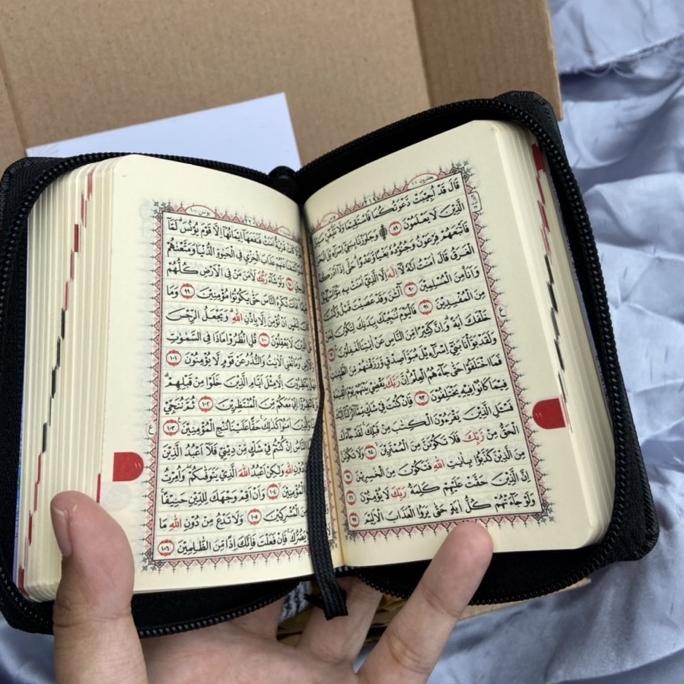 قَالَ قَدْ اُجِيبَتْ دَعْوَتُكُمَا فَاسْتَقِيمَا وَلَا تَتَّبِعَٓانِّ
الَّذِينَ لَا يَعْلَمُونَ ﴿٨٩﴾ وَجَاوَزْنَا بِبَنِٓى
فَاَتْبَعَهُمْ فِرْعَوْنُ وَجُنُودُهُ بَغْيًا وَعَدْوًا حَتّٰٓى اِذَٓا
الْغَرَقُ قَالَ اٰمَنْتُ اَنَّهُ لَٓا اِلٰهَ اِلَّا الَّذِٓى اٰمَنَتْ بِهِ
وَاَنَا۬ مِنَ الْمُسْلِمِينَ ﴿٩٠﴾ آٰلْـٰٔنَ وَقَدْ عَصَيْتَ قَبْلُ وَكُنْتَ
مِنَ الْمُفْسِدِينَ ﴿٩١﴾ فَالْيَوْمَ نُنَجِّيكَ بِبَدَنِكَ لِتَكُونَ لِمَنْ
خَلْفَكَ اٰيَةً وَاِنَّ كَثِيرًا مِنَ النَّاسِ عَنْ اٰيَاتِنَا لَغَافِلُونَ
وَلَقَدْ بَوَّأْنَا بَنِٓى اِسْرَٓائِلَ مُبَوَّاَ صِدْقٍ وَرَزَقْنَاهُمْ مِنَ
فَمَا اخْتَلَفُوا حَتّٰى جَٓاءَهُمُ الْعِلْمُ اِنَّ رَبَّكَ يَقْضِى بَيْنَهُمْ يَوْمَ
فِيمَا كَانُوا فِيهِ يَخْتَلِفُونَ ﴿٩٣﴾ فَاِنْ كُنْتَ فِى شَكٍّ مِمَّٓا
فَسْـَٔلِ الَّذِينَ يَقْرَؤُنَ الْكِتَابَ مِنْ قَبْلِكَ لَقَدْ جَٓاءَكَ
الْحَقُّ مِنْ رَبِّكَ فَلَا تَكُونَنَّ مِنَ الْمُمْتَرِينَ ﴿٩٤﴾ وَلَا تَكُونَنَّ
مِنَ الَّذِينَ كَذَّبُوا بِاٰيَاتِ اللّٰهِ فَتَكُونَ مِنَ الْخَاسِرِينَ ﴿٩٥﴾
اِنَّ الَّذِينَ حَقَّتْ عَلَيْهِمْ كَلِمَتُ رَبِّكَ لَا يُؤْمِنُونَ ﴿٩٦﴾
وَلَوْ جَٓاءَتْهُمْ كُلُّ اٰيَةٍ حَتّٰى يَرَوُا الْعَذَابَ الْاَلِيمَ ﴿٩٧﴾
اٰمَنَتْ فَنَفَعَهَٓا اِيمَانُهَٓا اِلَّا قَوْمَ يُونُسَ لَمَّٓا
عَذَابَ الْخِزْىِ فِى الْحَيٰوةِ الدُّنْيَا وَمَتَّعْنَاهُمْ
وَلَوْ شَٓاءَ رَبُّكَ لَاٰمَنَ مَنْ فِى الْاَرْضِ كُلُّهُمْ
تُكْرِهُ النَّاسَ حَتّٰى يَكُونُوا مُؤْمِنِينَ ﴿٩٩﴾ وَمَا
لِنَفْسٍ اَنْ تُؤْمِنَ اِلَّا بِاِذْنِ اللّٰهِ وَيَجْعَلُ الرِّجْسَ
لَا يَعْقِلُونَ ﴿١٠٠﴾ قُلِ انْظُرُوا مَاذَا فِى السَّمٰوَاتِ
وَمَا تُغْنِى الْاٰيَاتُ وَالنُّذُرُ عَنْ قَوْمٍ لَا يُؤْمِنُونَ ﴿١٠١﴾
يَنْتَظِرُونَ اِلَّا مِثْلَ اَيَّامِ الَّذِينَ خَلَوْا مِنْ قَبْلِهِمْ
اِنِّى مَعَكُمْ مِنَ الْمُنْتَظِرِينَ ﴿١٠٢﴾ ثُمَّ نُنَجِّى
اٰمَنُوا كَذٰلِكَ حَقًّا عَلَيْنَا نُنْجِ الْمُؤْمِنِينَ ﴿١٠٣﴾
النَّاسُ اِنْ كُنْتُمْ فِى شَكٍّ مِنْ دِينِى فَلَٓا اَعْبُدُ الَّذِينَ
اللّٰهِ وَلٰكِنْ اَعْبُدُ اللّٰهَ الَّذِى يَتَوَفّٰيكُمْ وَاُمِرْتُ
الْمُؤْمِنِينَ ﴿١٠٤﴾ وَاَنْ اَقِمْ وَجْهَكَ لِلدِّينِ حَنِيفًا
الْمُشْرِكِينَ ﴿١٠٥﴾ وَلَا تَدْعُ مِنْ دُونِ اللّٰهِ مَا
يَضُرُّكَ فَاِنْ فَعَلْتَ فَاِنَّكَ اِذًا مِنَ الظَّالِمِينَ ﴿١٠٦﴾